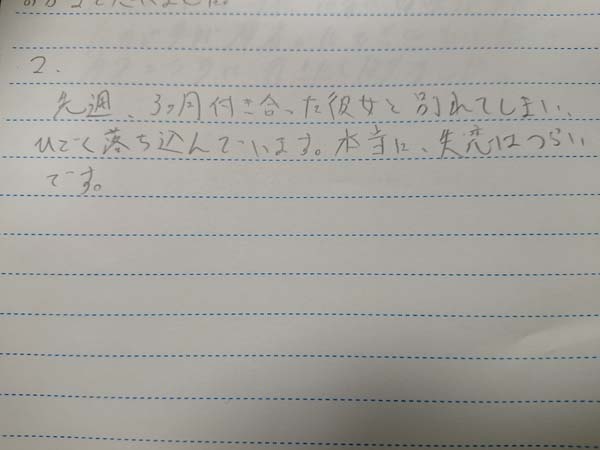 2.
先週、3ヶ月付き合った彼女と別れてしまい、
ひどく落ち込んでいます。本当に、失恋はつらい
です。